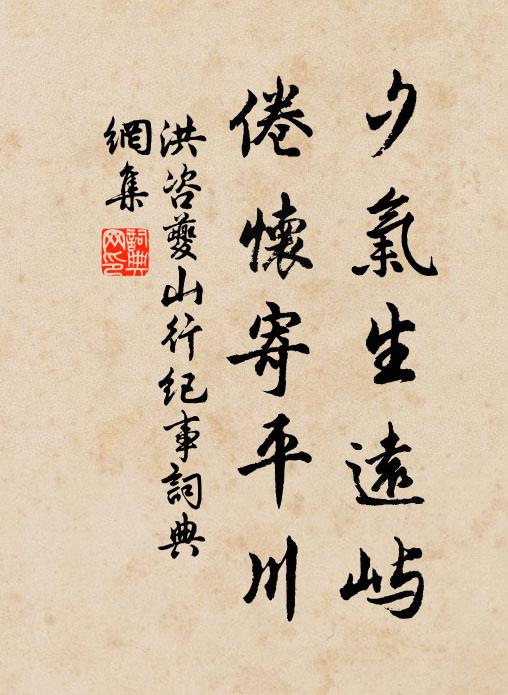 夕氣生遠嶼
倦懷寄平川
洪咨夔山行纪事詞典
網集
詞典
网印